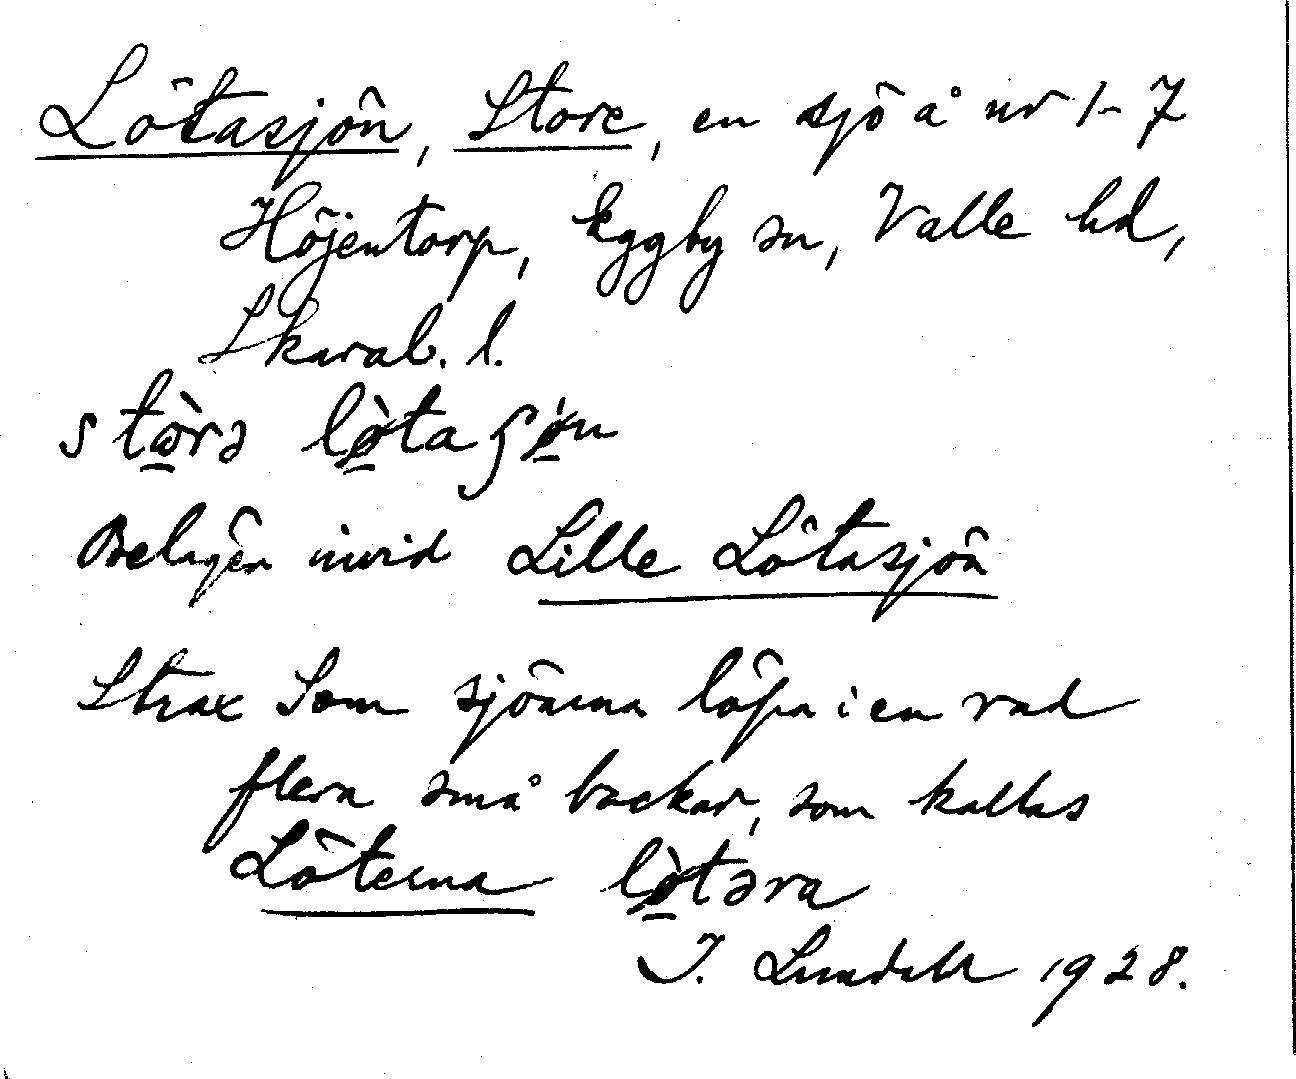 Lötasjön, Store, en sjö å nr 1-7
Höjentorp, Eggby sn, Valle hd,
Skarab. l.
stὼ̲rə lø̲̀taʃǿ̲n
Belägen invid Lille Lötasjön
Strax S om sjöarna löpa i en rad
flera små backar, som kallas
Löterna lø̲̀təra
J. Lundahl 1928.